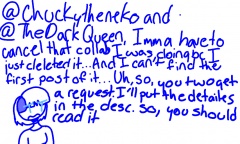 @Chuckytheneko and
@TheDarkQueen, Imma have to
cancel that collab I was doing bc I
just deleted it... And I can't find the
first post of it... Uh, so, you two get
a request. I'll put the detailes
in the desc. so, you should
read it